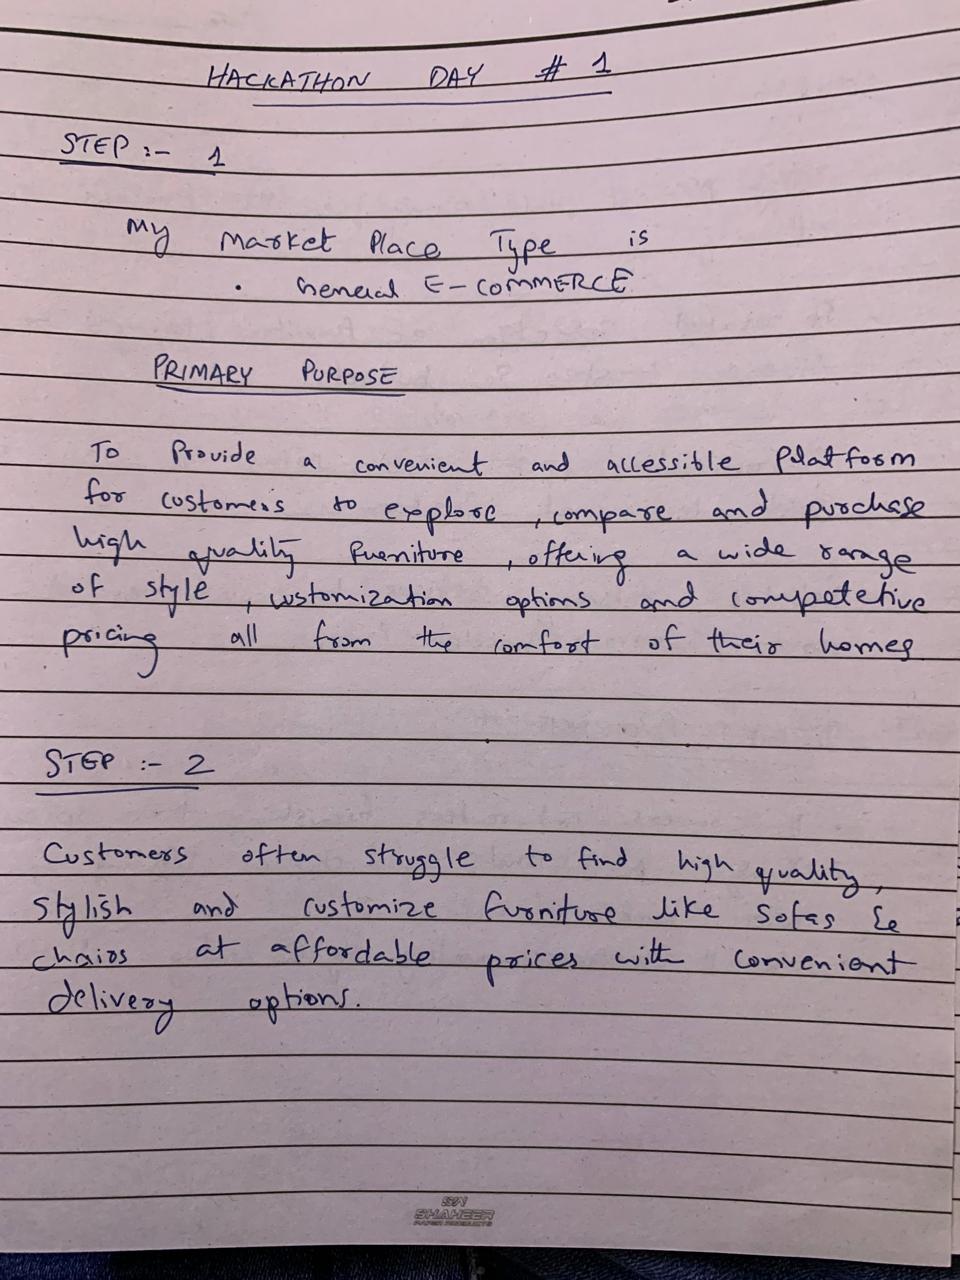 HACKATHON DAY # 1
STEP :- 1
My Market Place Type is
• General E-COMMERCE
PRIMARY PURPOSE
To Provide a convenient and accessible Platform
for customers to explore , compare and purchase
high quality furniture , offering a wide range
of style , customization options and competetive
pricing all from the comfort of their homes
STEP :- 2
Customers often struggle to find high quality,
stylish and customize furniture like sofas &
chairs at affordable prices with convenient
delivery options.
SHAHEER
PAPER PRODUCTS